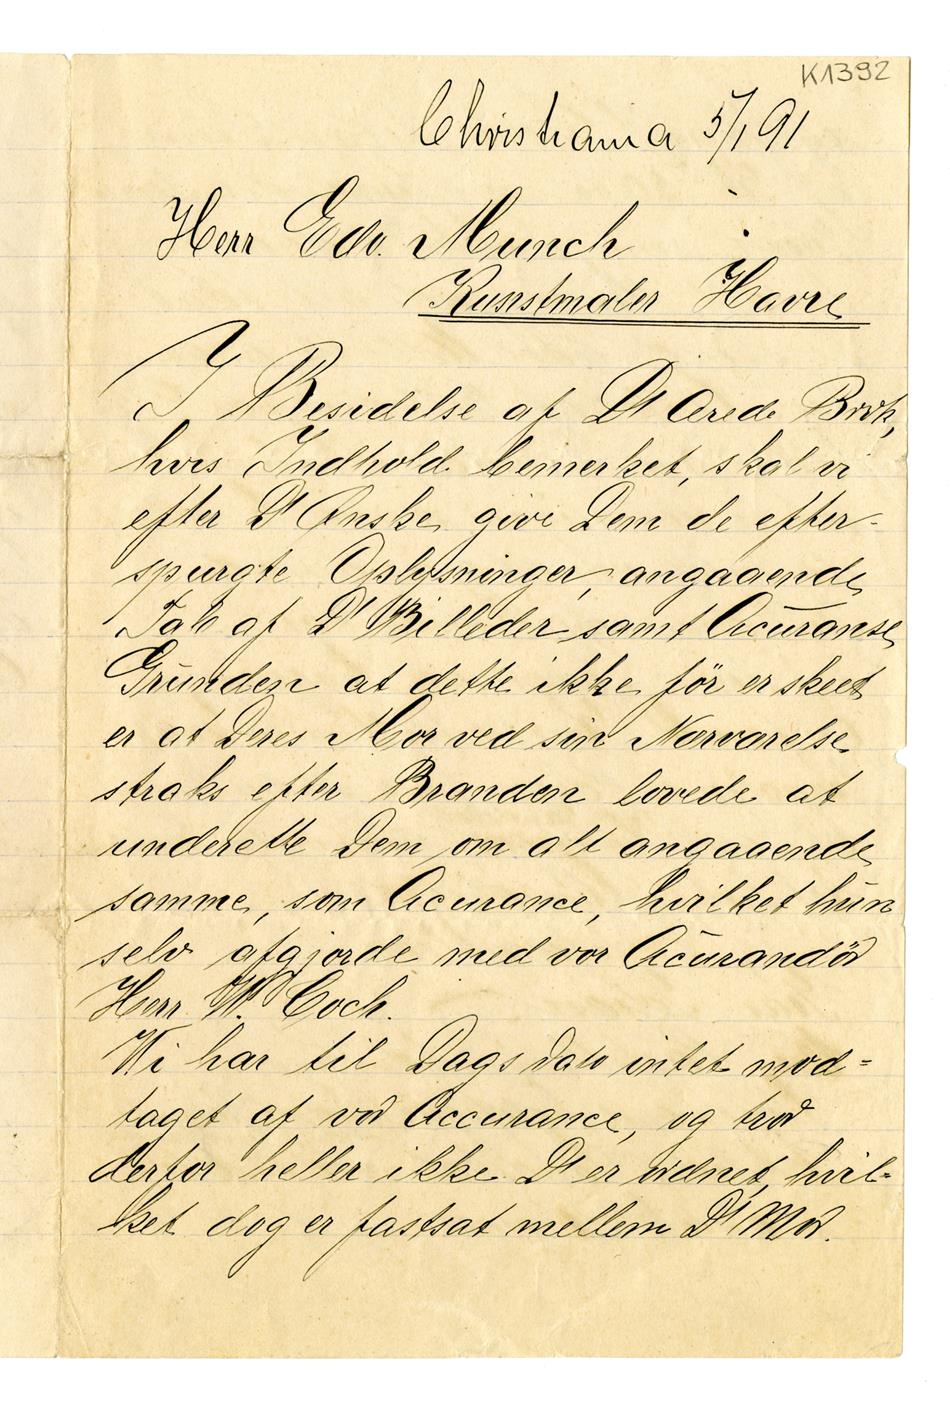 K1392
Christiania 5/1 91
Herr Edv. Munch
Kunstmaler Havre
I Besidelse af Ds ærede Brek,
hvis Indhold bemerket, skal vi
efter Ds Ønske give Dem de efter-
spurgte Oplysninger, angaaende
Tab af Ds Billeder samt Acuranse
Grunden at dette ikke för er skeet
er at Deres Mor ved sin Nærværelse
straks efter Branden lovede at
underette Dem om alt angaaende
samme, som Acurance, hvilket hun
selv afgjorde med vor Acurandör
Herr W. Coch.
Vi har til Dags Dato intet mod=
taget af vor Accurance, og tror
derfor heller ikke Ds er ordnet, hvil-
ket dog er fastsat mellem Ds Mor.